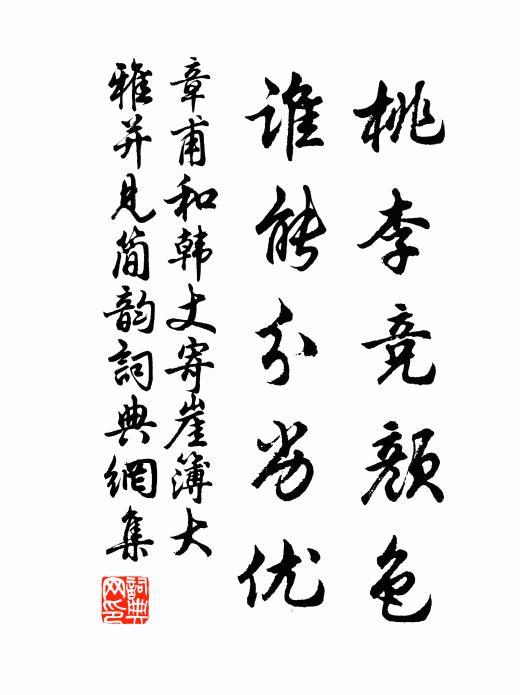 桃李竞颜色
谁能分劣优
章甫和韩丈寄崖簿大
雅并见简韵詞典網集
詞典网印